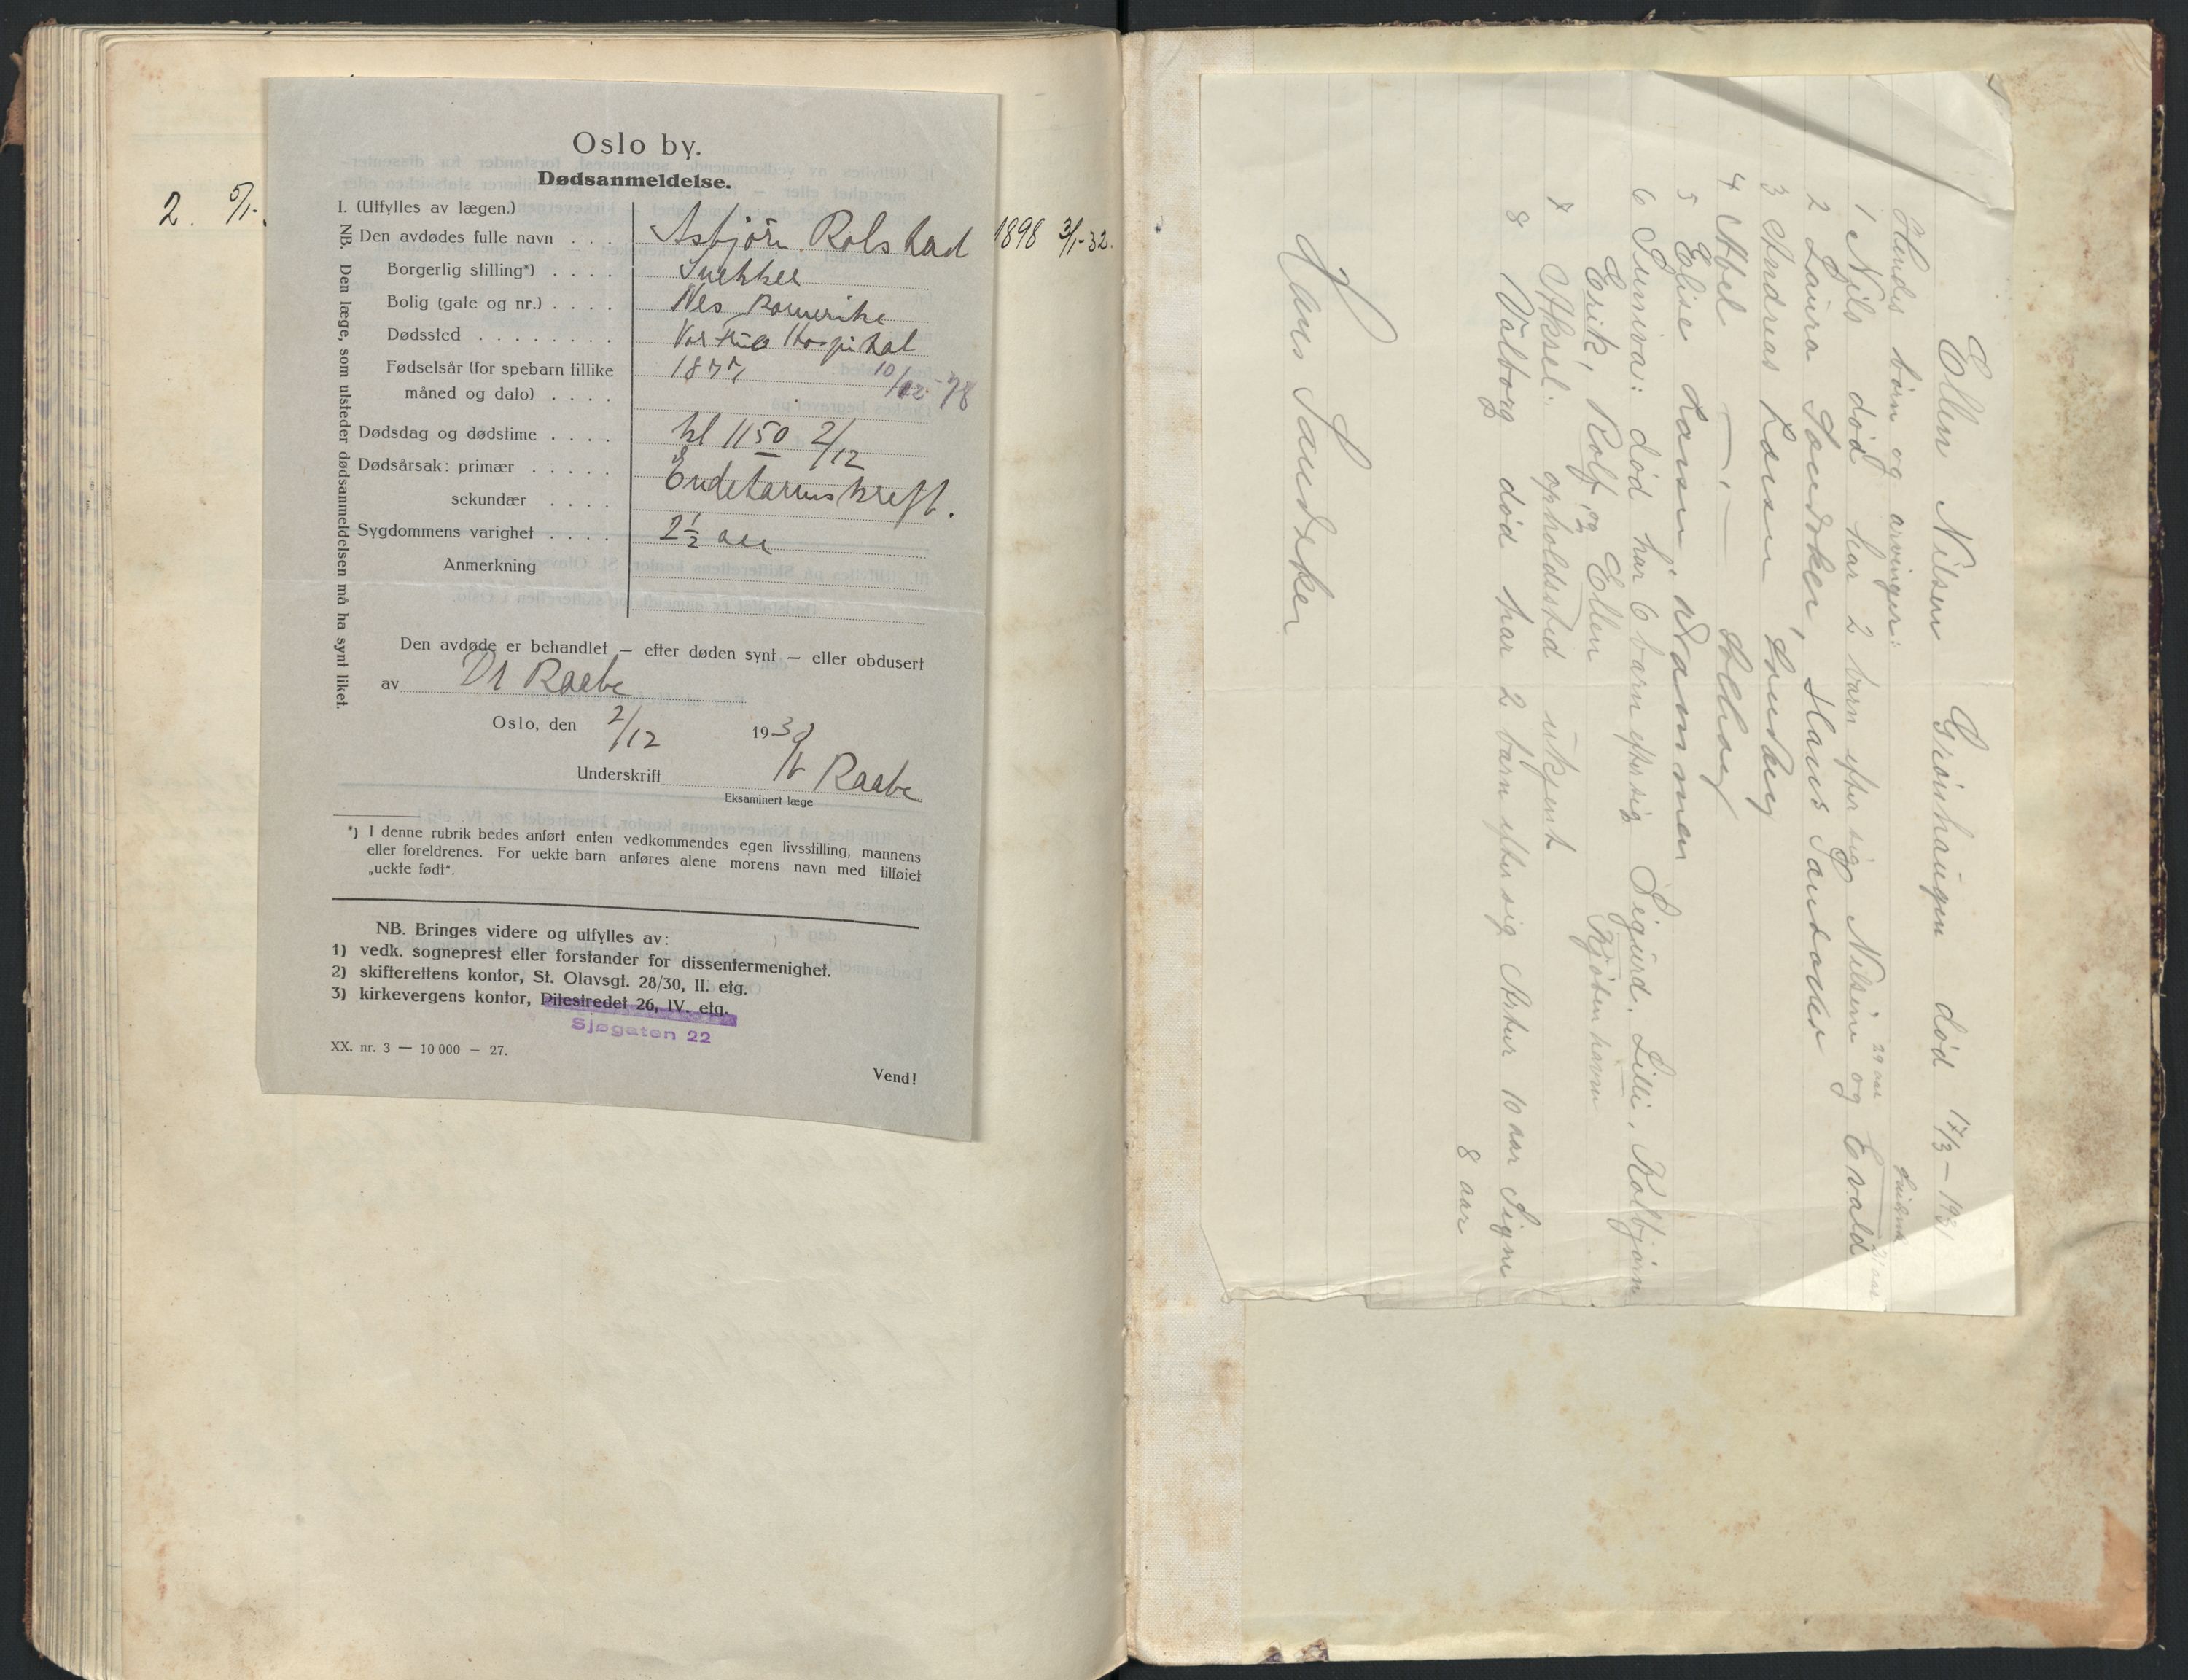 2. 5/1-
1898 3/1-32.
Oslo by.
Dødsanmeldelse.
I. (Utfylles av lægen.)
Den avdødes fulle navn . . . Asbjørn Rolstad
Borgerlig stilling*) . . . . Snekker
Bolig (gate og nr.) . . . . Nes Romerike
Dødssted . . . . . . . . Vor Frue Hospital
Fødselsår (for spebarn tillike 1877, 10/12-78
måned og dato) . . . .
Dødsdag og dødstime . . . . kl 11 50 2/12
Dødsårsak: primær . . . . . Endetarmskreft.
sekundær . . . .
Sygdommens varighet . . . . 2 1/2 aar
Anmerkning
NB. Den læge, som utsteder dødsanmeldelsen må ha synt liket.
Den avdøde er behandlet — efter døden synt — eller obdusert
av Dr Raabe
Oslo, den 2/12 193
Underskrift Raabe
Eksaminert læge
*) I denne rubrik bedes anført enten vedkommendes egen livsstilling, mannens
eller foreldrenes. For uekte barn anføres alene morens navn med tilføiet
„uekte født".
NB. Bringes videre og utfylles av:
1) vedk. sogneprest eller forstander for dissentermenighet.
2) skifterettens kontor, St. Olavsgt. 28/30, II. etg.
3) kirkevergens kontor, Pilestredet 26, IV. etg.
Sjøgaten 22
XX. nr. 3 — 10 000 — 27.
Vend!
Ellen Nilsen Grönhaugen död 17/3 - 1931
Hendes börn og arvinger:
29 aar
1 Nils död har 2 barn efter sig Nilsine og Evald
2 Laura Sandaker, Hans Sandaker
3 Andreas Larsen
4 Abel — " — Solhaug
5 Elise Larsen,
6 Suniva: död har 6 barn efter sig Sigurd, Lilli, Kolbjörn
Erik, Rolf, og Ellen Kjöbenhavn
7 Aksel: opholdssted ukjent
8 Valborg död har 2 barn efter sig Artur 10 aar Signe
8 aar
Hans Sandaker